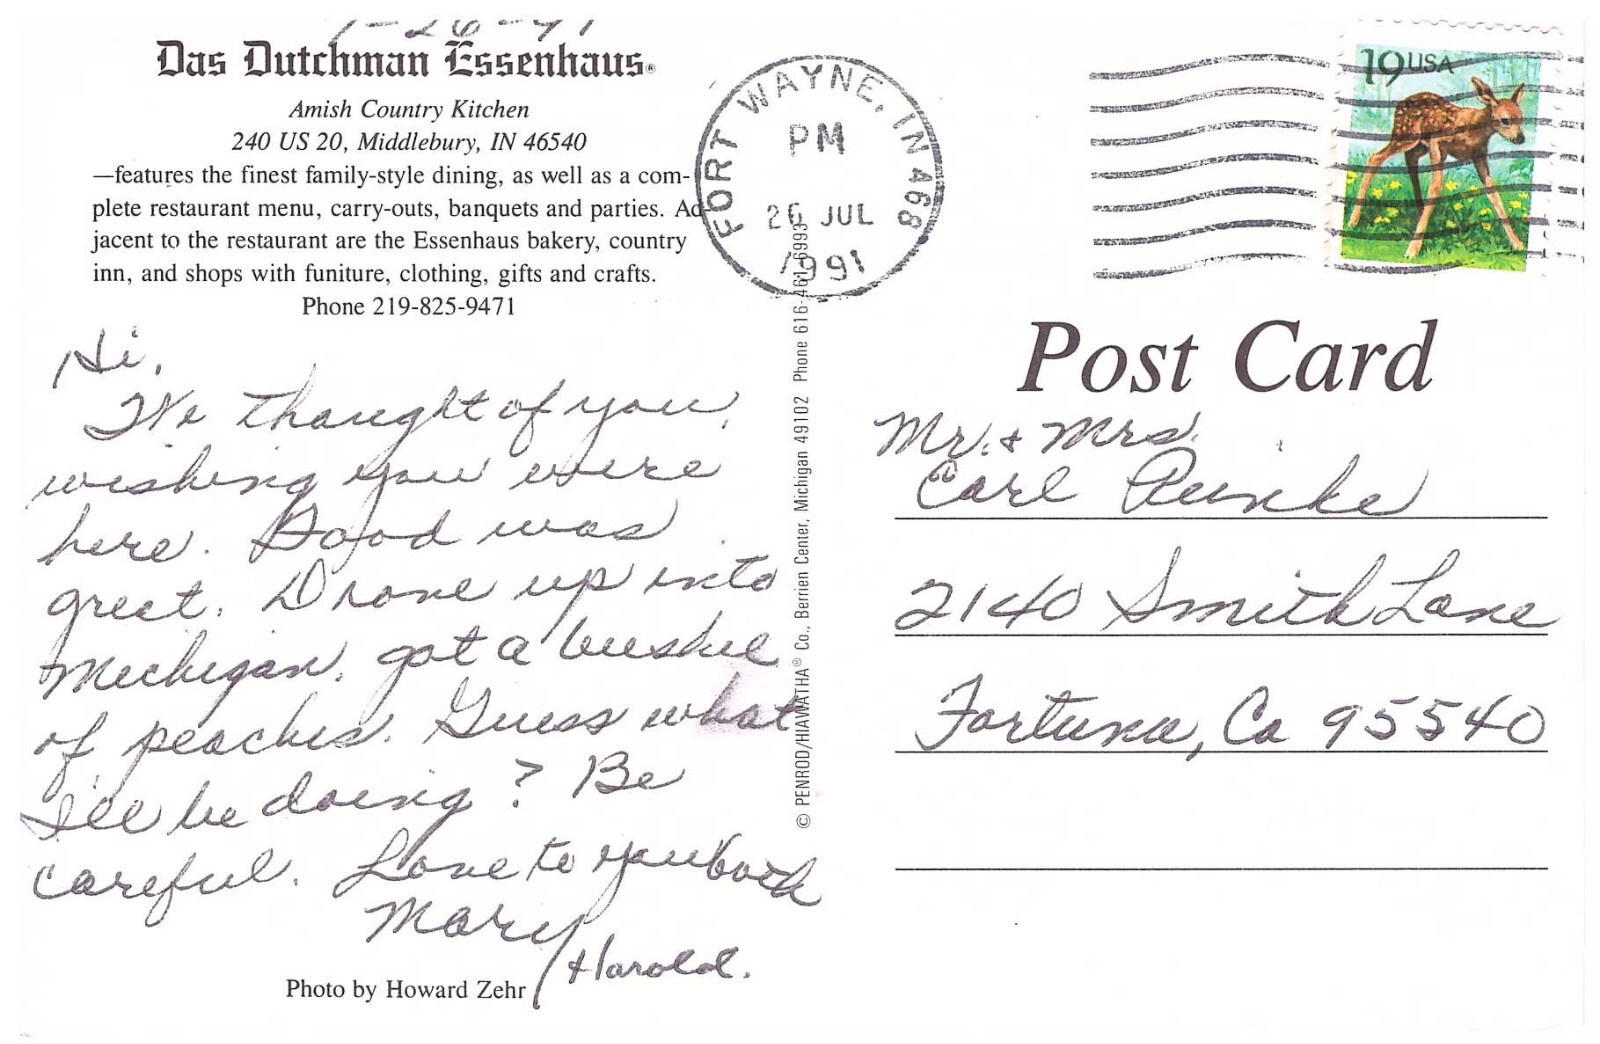 7-26-91
Das Dutchman Essenhaus®
Amish Country Kitchen
240 US 20, Middlebury, IN 46540
—features the finest family-style dining, as well as a com-
plete restaurant menu, carry-outs, banquets and parties. Ad-
jacent to the restaurant are the Essenhaus bakery, country
inn, and shops with funiture, clothing, gifts and crafts.
Phone 219-825-9471
Hi,
We thought of you,
wishing you were
here. Food was
great. Drove up into
Michigan, got a bushel
of peaches. Guess what
I'll be doing? Be
careful. Love to you both
Mary
Harold.
Photo by Howard Zehr
© PENROD/HIAWATHA® Co., Berrien Center, Michigan 49102 Phone 616-461-6993
FORT WAYNE, IN 468
PM
26 JUL
1991
19 USA
Post Card
Mr. & Mrs.
Carl Reinke
2140 Smith Lane
Fortuna, Ca 95540